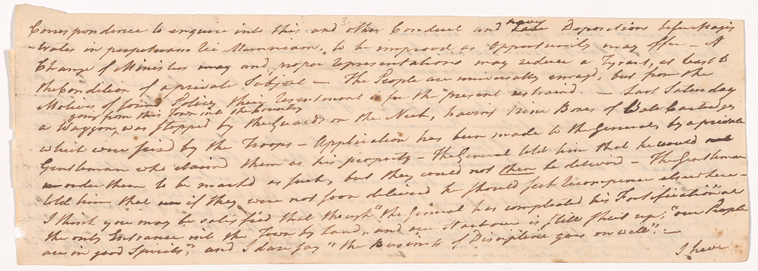 Correspondence to enquire into this and other Conduct and have Deposition before Magis
trates in perpetuam Rei Memoriam, to be improvd as opportunity may offer — A
Change of Ministers may and proper representations may reduce a Tyrant, at least to
the Condition of a private Subject — The People are universally enragd, but from the
Motives of sound Policy their resentment is for the present restraind. — Last Saturday
going from this Town into the Country
a Waggon was stopped by the Guards on the Neck, having nine Boxes of Ball Cartridges
which were seizd by the Troops — Application has been made to the General, by a private
Gentleman who claimd them as his property — The General told him that he would
order them to be markd as such, but they could not then be deliverd — The Gentleman
told him that if they were not soon deliverd he should seek recompence elsewhere —
I think you may be satisfied that though "the General has compleated his Fortification" at
the only Entrance into the Town by Land, and our Harbour is still shut up, "our People
are in good Spirits", and I dare say "the Business of Discipline goes on well". —
I have